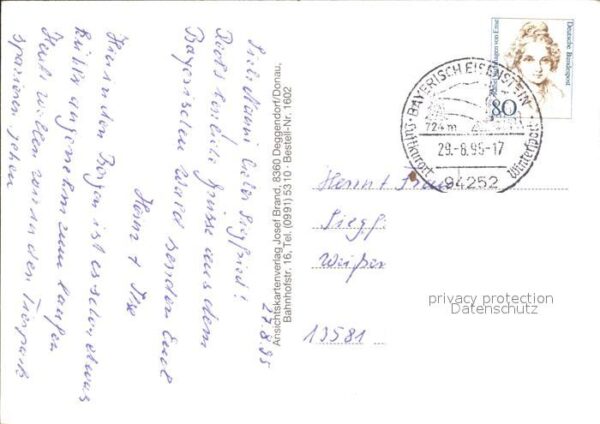 27.8.95
Liebe Mami lieber Siegfried!
Recht herzliche Grüsse aus dem
Bayerischen Wald senden Euch
Horst + Ilse
Hier in den Bergen ist es schon etwas
kühler angenehm zum laufen
Heute wollen wir in den Tierpark
spazieren gehen
Ansichtskartenverlag Josef Brand, 8360 Deggendorf/Donau,
Bahnhofstr. 16, Tel. (0991) 5310 · Bestell-Nr. 1602
Deutsche Bundespost
80
BAYERISCH EISENSTEIN
724 m
29.-8.95-17
Luftkurort
Wintersport
94252
Herrn + Frau
Siegf.
13581
privacy protection
Datenschutz